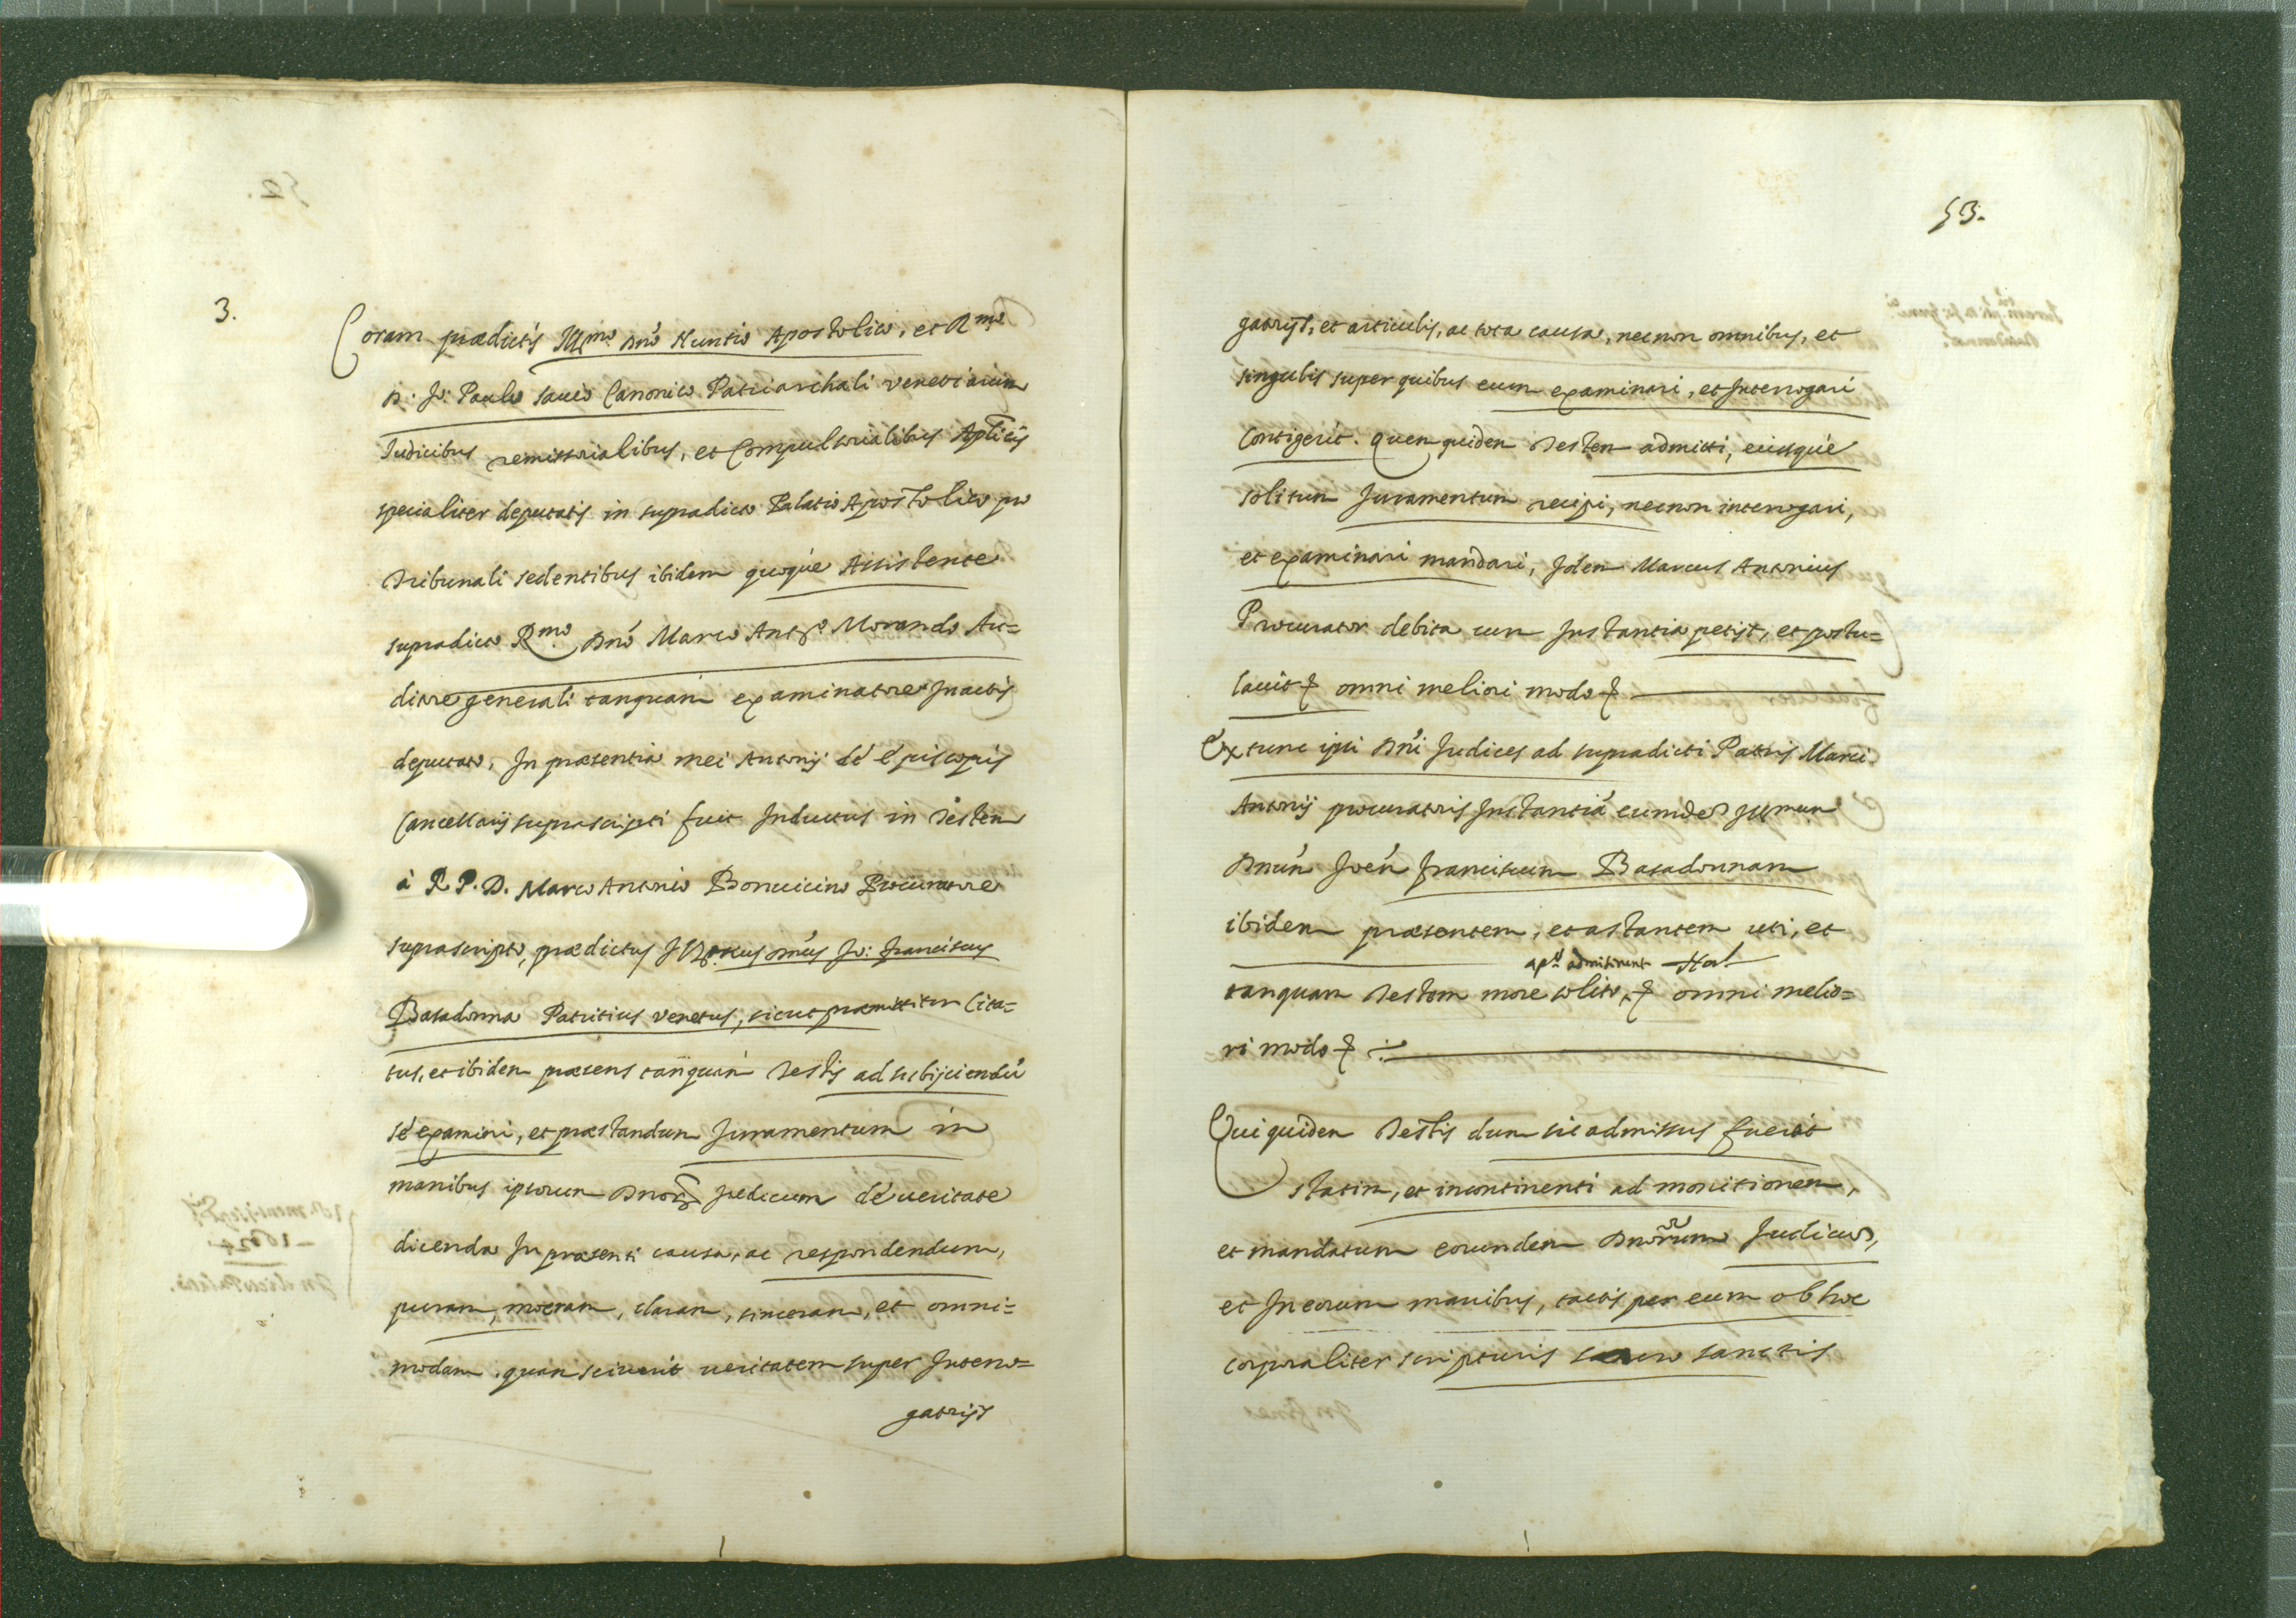 3.
Coram prædictis Ill.mo Dno Nuntio Apostolico, et R.mo
D. Jo: Paulo Sauio Canonico Patriarchali Venetiarum
Judicibus remissorialibus, et Compulsorialibus Aplicis
specialiter deputatis in supradicto Palatio Apostolico pro
Tribunali sedentibus ibidem quoque Assistente
supradicto R.mo Dno Marco Ant.o Morando Au=
ditore generali tanquam examinatore In actis
deputato, In præsentia mei Antonij de Episcopis
Cancellarij suprascripti fuit Inductus in Testem
à R. P. D. Marco Antonio Bonuicino Procuratore
suprascripto, prædictus Dnus Jo: Franciscus
Basadonna Patritius Venetus, sicut præmittitur Cita=
tus, et ibidem præsens tanquam Testis ad subijciendū
sé examini, et præstandum Juramentum in
manibus ipsorum Dnorum Judicum dé ueritate
dicenda In præsenti causa, ac respondendum,
puram, meram, claram, sinceram, et omni=
modam, quam sciuerit ueritatem super Interro=
gatrijs
53.
gatrijs, et articulis, ac tota causa, necnon omnibus, et
singulis super quibus eum examinari, et Interrogari
Contigerit. Quem quidem Testem admitti, eiusque
solitum Juramentum recipi, necnon interrogari,
et examinari mandari, Idem Marcus Antonius
Procurator debita cum Instantia petijt, et postu=
lauit & omni meliori modo &
Ex tunc ipsi Dni Judices ad supradicti Patris Marci
Antonij procuratoris Instantiá eumdem Illmum
Dnum Joem Franciscum Basadonnam
ibidem præsentem, et astantem uti, et
admiserunt
tanquam Testem more solito, & omni melio=
ri modo &
Qui quidem Testis dum sic admissus fuerit
statim, et incontinenti ad monitionem,
et mandatum eorundem Dnorum Judicum,
et In eorum manibus, tactis per eum ob hoc
corporaliter scripturis sacro sanctis